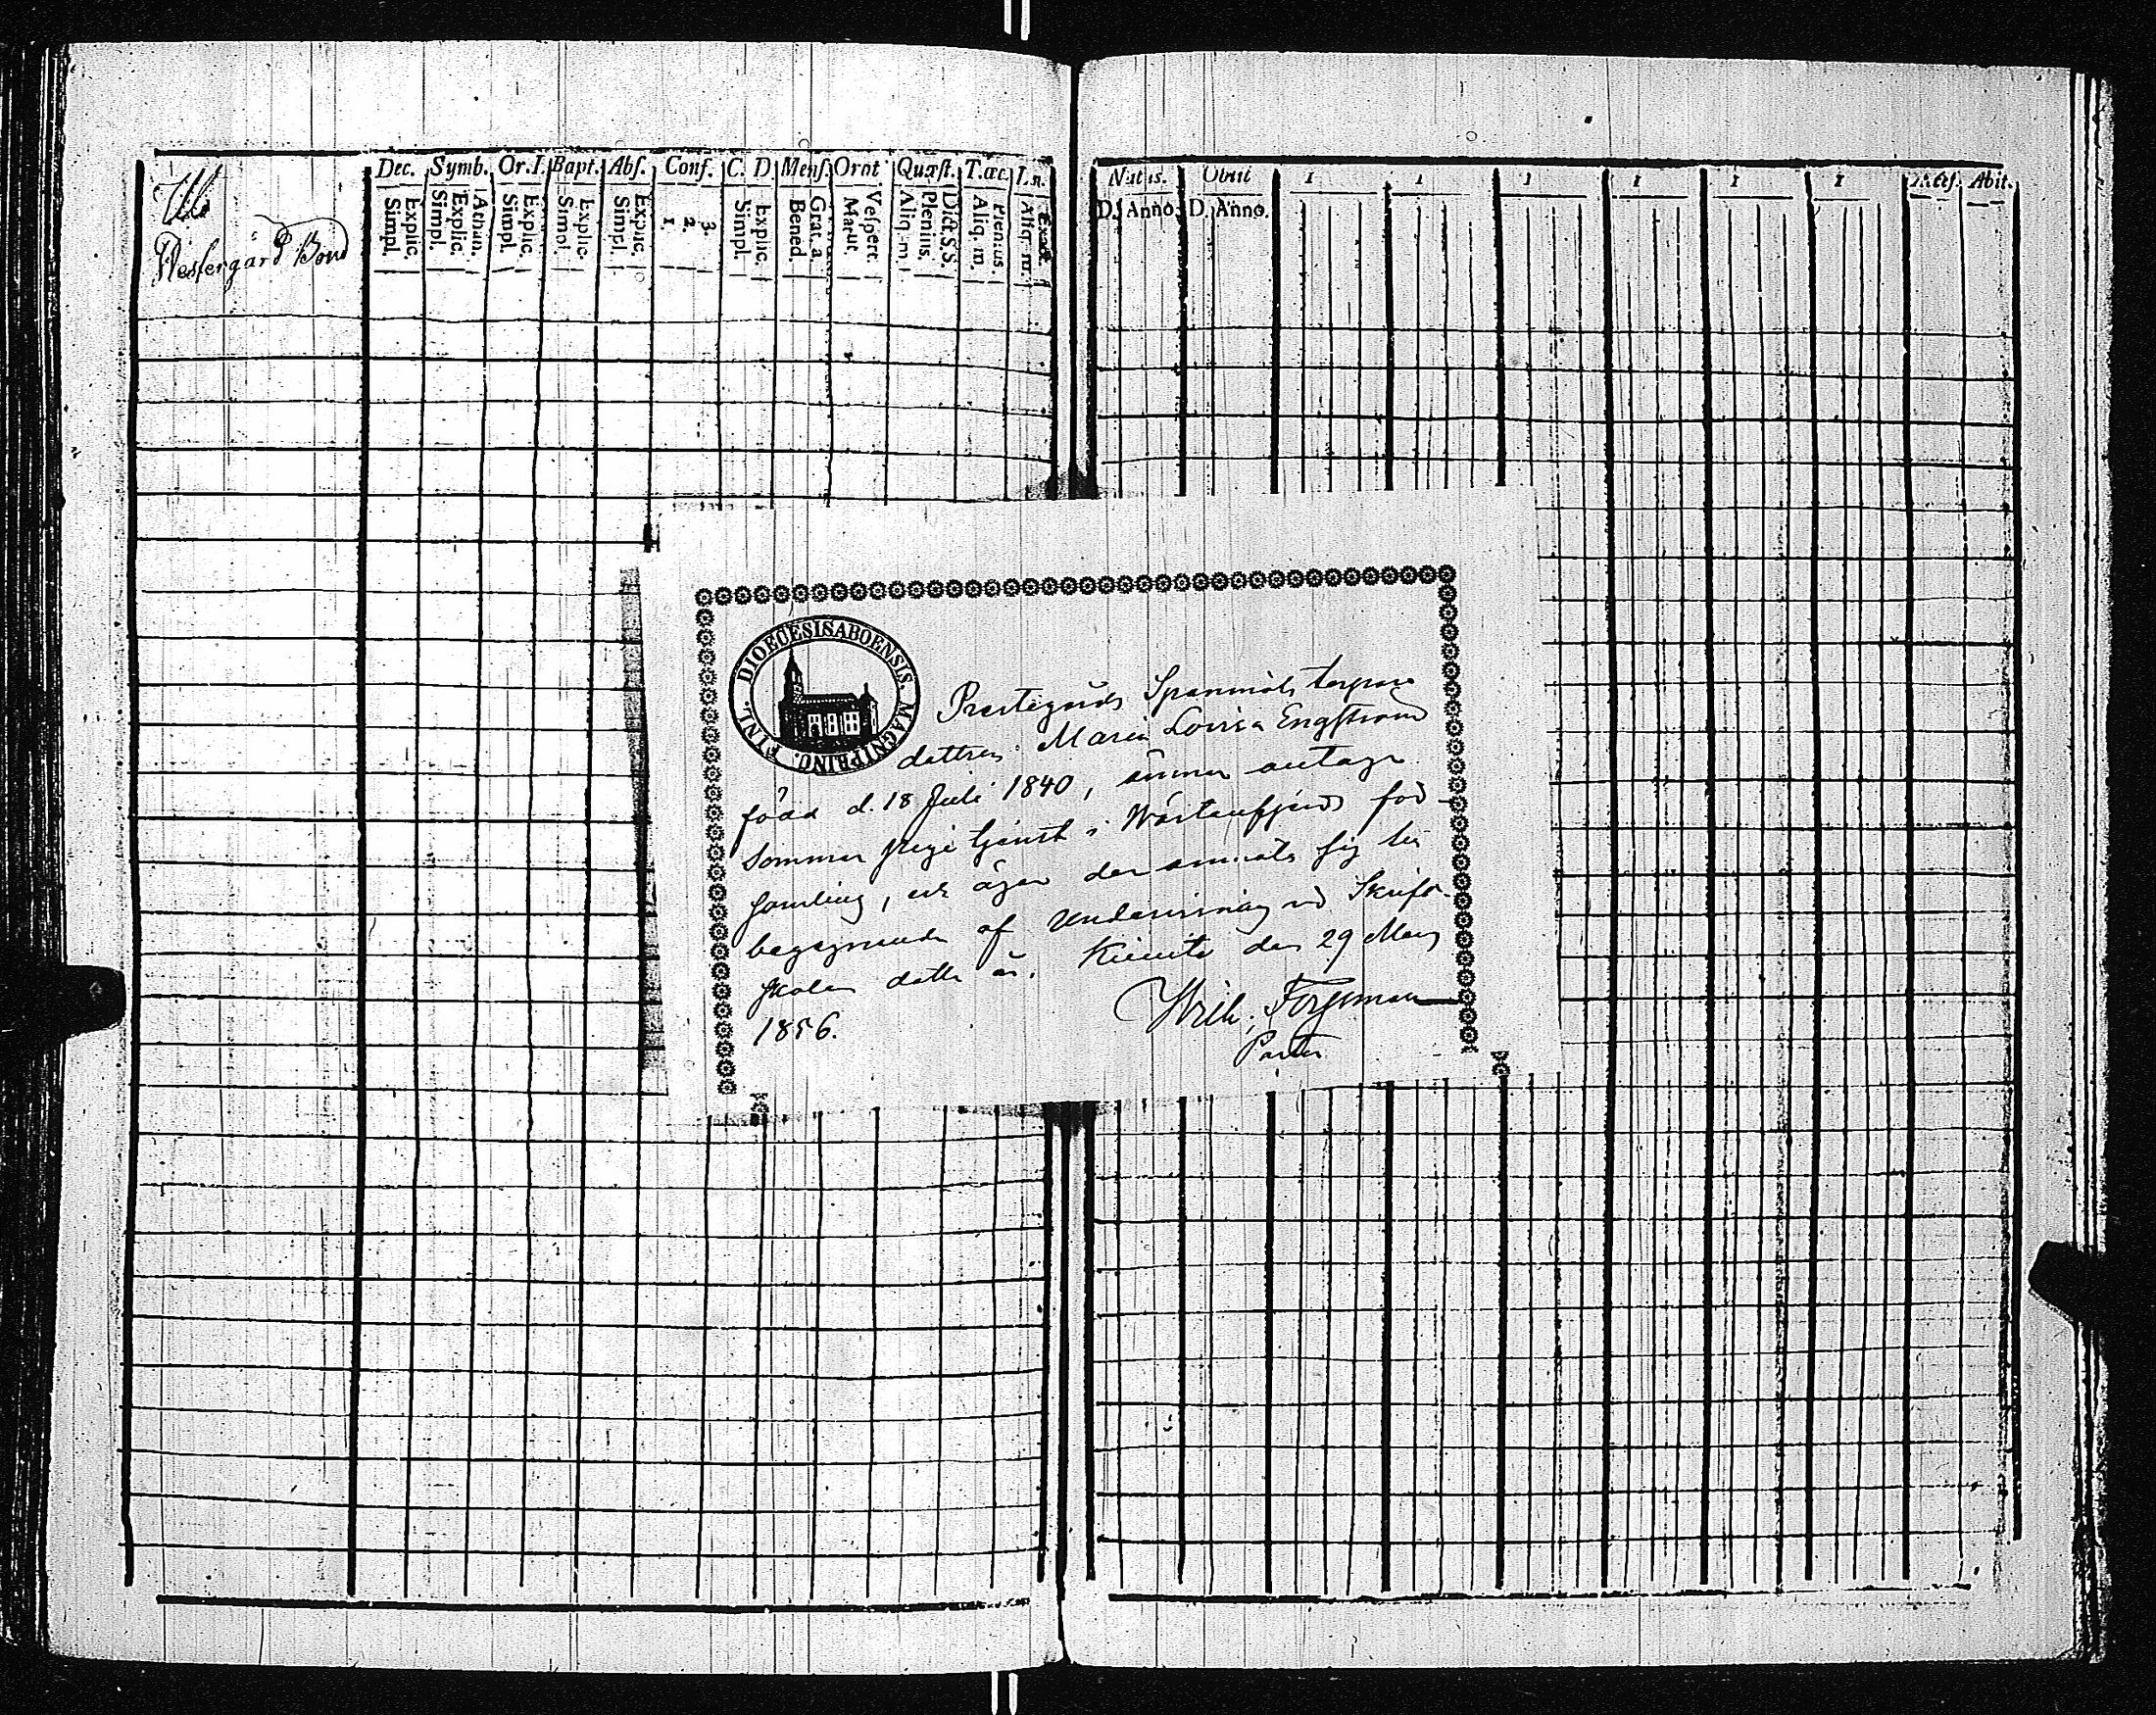 Westergård Bond
Dec. Symb. Or. I. Bapt. Abs. Conf. C. D. Mens. Orat Quæst. T. œc.
Explic. Simpl.
Athan. Explic. Simpl.
Explic. Simpl.
Explic. Simpl.
Explic. Simpl.
3. 2. 1.
Explic. Simpl.
Grat. a. Bened.
Vespert. Matut.
Dict. S.S. Plenius. Aliq. m.
Plenius. Aliq. m.
Exact. Aliq. m.
Natus. Obiit 1 1 1 1 1 1 Abit.
D. Anno. D. Anno.
DIOECESIS ABOENSIS. MAGNI PRINC. FINL.
Prestgårds Spannmåls torpare
dottren Maria Lovisa Engström
född d. 18 Juli 1840, ämnar antaga
sommar pige tjenst i församling, och äger der anmäla sig till
begagnande af undervisning vid Skrift
skolan detta år. Kimito den 29 Mars
1856.
Wilh.
Pastor